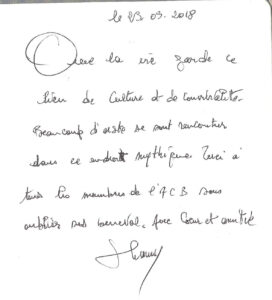 le 23.03.2018
Que la vie garde ce
lieu de Culture et de convivialité.
Beaucoup d'artiste se sont rencontrés
dans ce endroit mythique. Merci à
tous les membres de l'ACB sans
oublier
avec Cœur et amitié